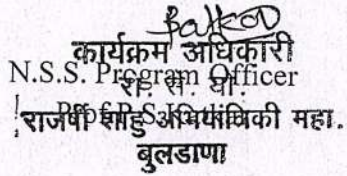 कार्यक्रम अधिकारी
N.S.S. Program Officer
रा. से. यो.
राजर्षी शाहु अभियांत्रिकी महा.
बुलडाणा